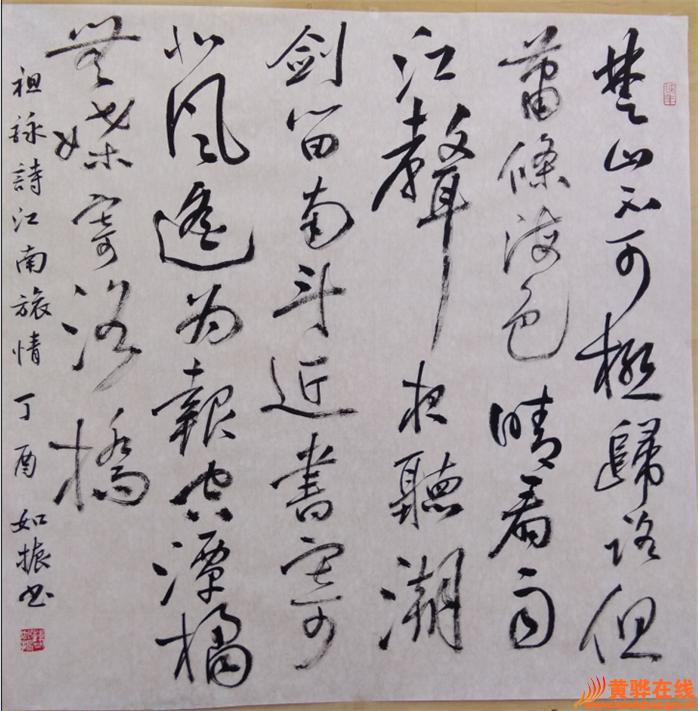 楚山不可極歸路但
蕭條海色晴看雨
江聲夜聽潮
剑留南斗近書寄
北風遙为報空潭橘
無媒寄洛橋
祖詠詩江南旅情 丁酉 如振书
黄骅在线